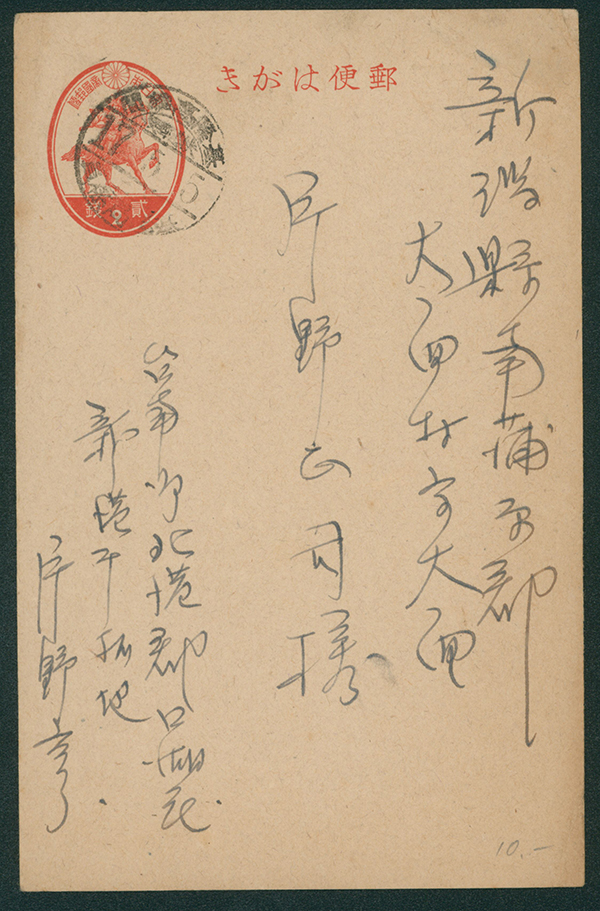 郵便はがき
新潟縣南蒲原郡
大面村字大面
片野正司様
台南州北港郡口湖庄
新港干拓地
片野亨
貳2錢
10.-